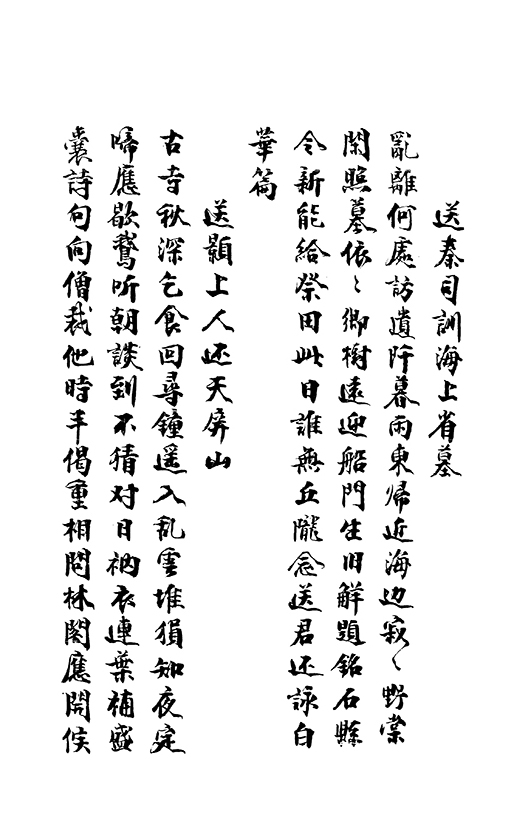 送秦司訓海上省墓
亂離何處訪遺阡暮雨東帰近海边寂〻野棠
閑照墓依〻鄉樹遠迎船門生旧解題銘石縣
令新能給祭田此日誰無丘隴念送君还詠白
華篇
送顥上人还天屏山
古寺秋深乞食回尋鐘遥入乱雲堆猨知夜定
啼應歇鵞听朝談到不猜对日衲衣連葉補盛
囊詩句向僧裁他時半偈重相問林閣應開候